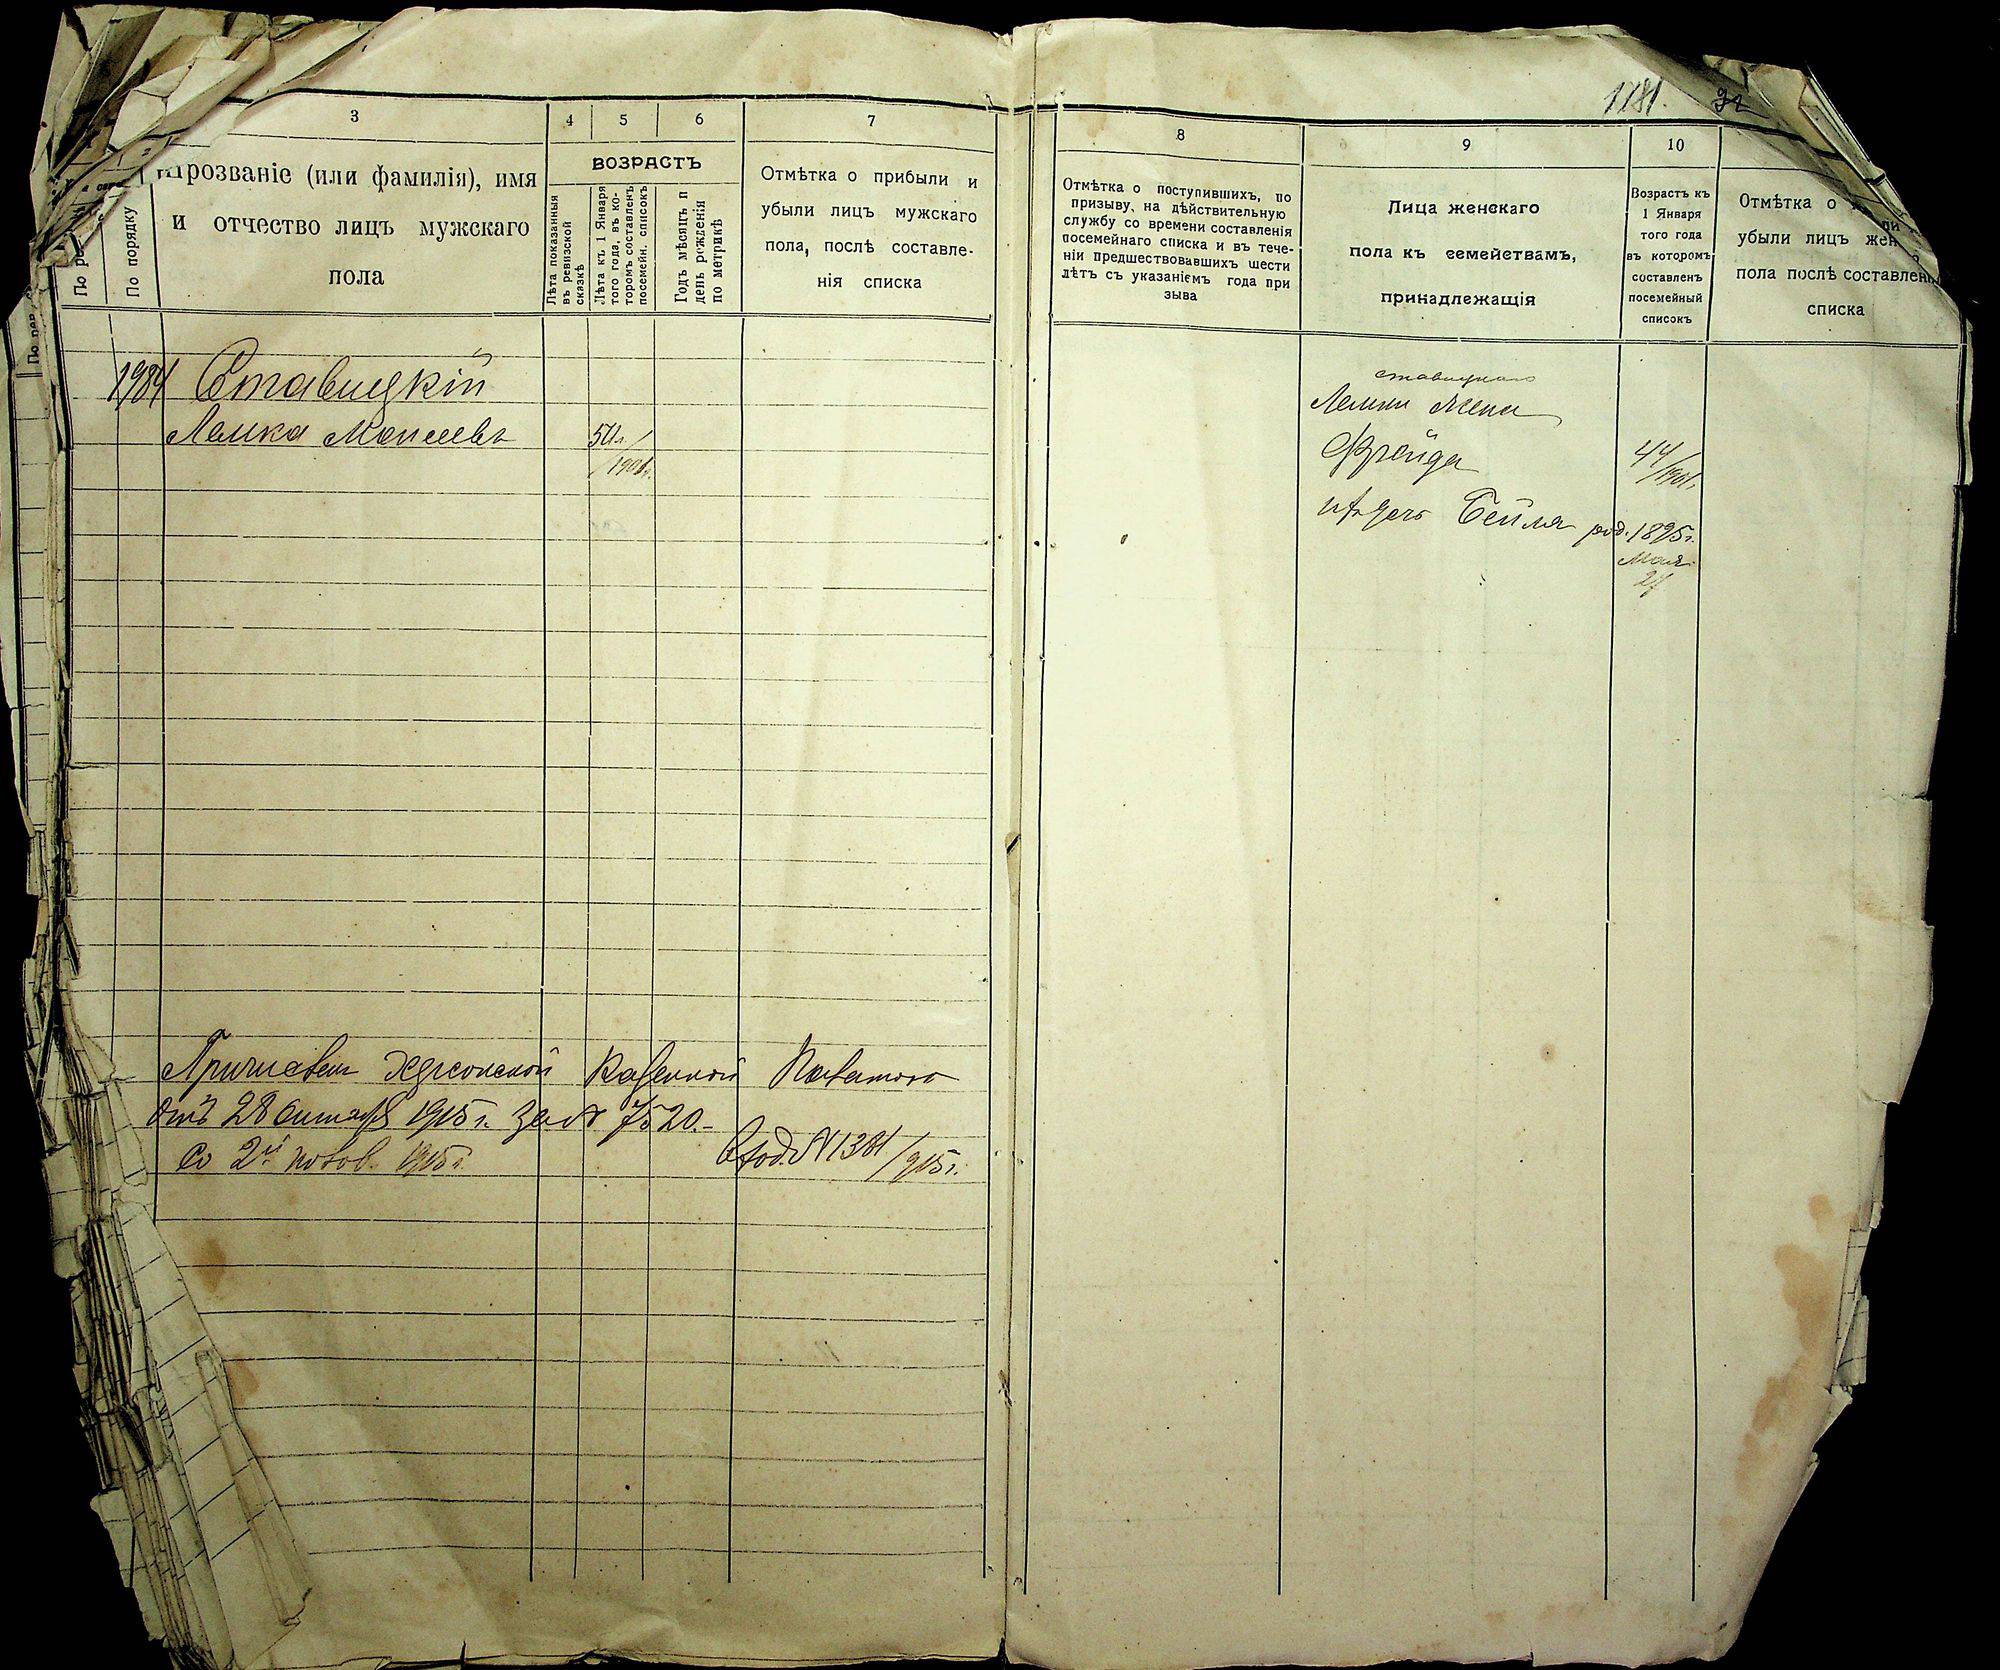 1181.
3
4
5
6
7
Прозваніе (или фамилія), имя
и отчество лицъ мужскаго
пола
ВОЗРАСТЪ
По порядку
Лѣта показанныя
въ ревизской
сказкѣ
Лѣта къ 1 Января
того года, въ ко-
торомъ составленъ
посемейн. списокъ
Годъ мѣсяцъ и
день рожденія
по метрикѣ
Отмѣтка о прибыли и
убыли лицъ мужскаго
пола, послѣ составле-
нія списка
8
9
10
Отмѣтка о поступившихъ, по
призыву, на дѣйствительную
службу со времени составленія
посемейнаго списка и въ тече-
ніи предшествовавшихъ шести
лѣтъ съ указаніемъ года при
зыва
Лица женскаго
пола къ семействамъ,
принадлежащія
Возрастъ къ
1 Января
того года
въ которомъ
составленъ
посемейный
списокъ
Отмѣтка о
убыли лицъ жен
пола послѣ составлені
списка
1984 Ставицкій
Лемка Моисеевъ 50л/
/1901г.
ставицкаго
Лемки жена
Фрейда 44/1901г.
ихъ дочь Бейля род. 1895г.
Мая
27
Причисленъ Херсонской Казенной Палатою
отъ 28 Октября 1915г. за № 7520.-
со 2й полов. 1915г. Вход. № 1381/915г.